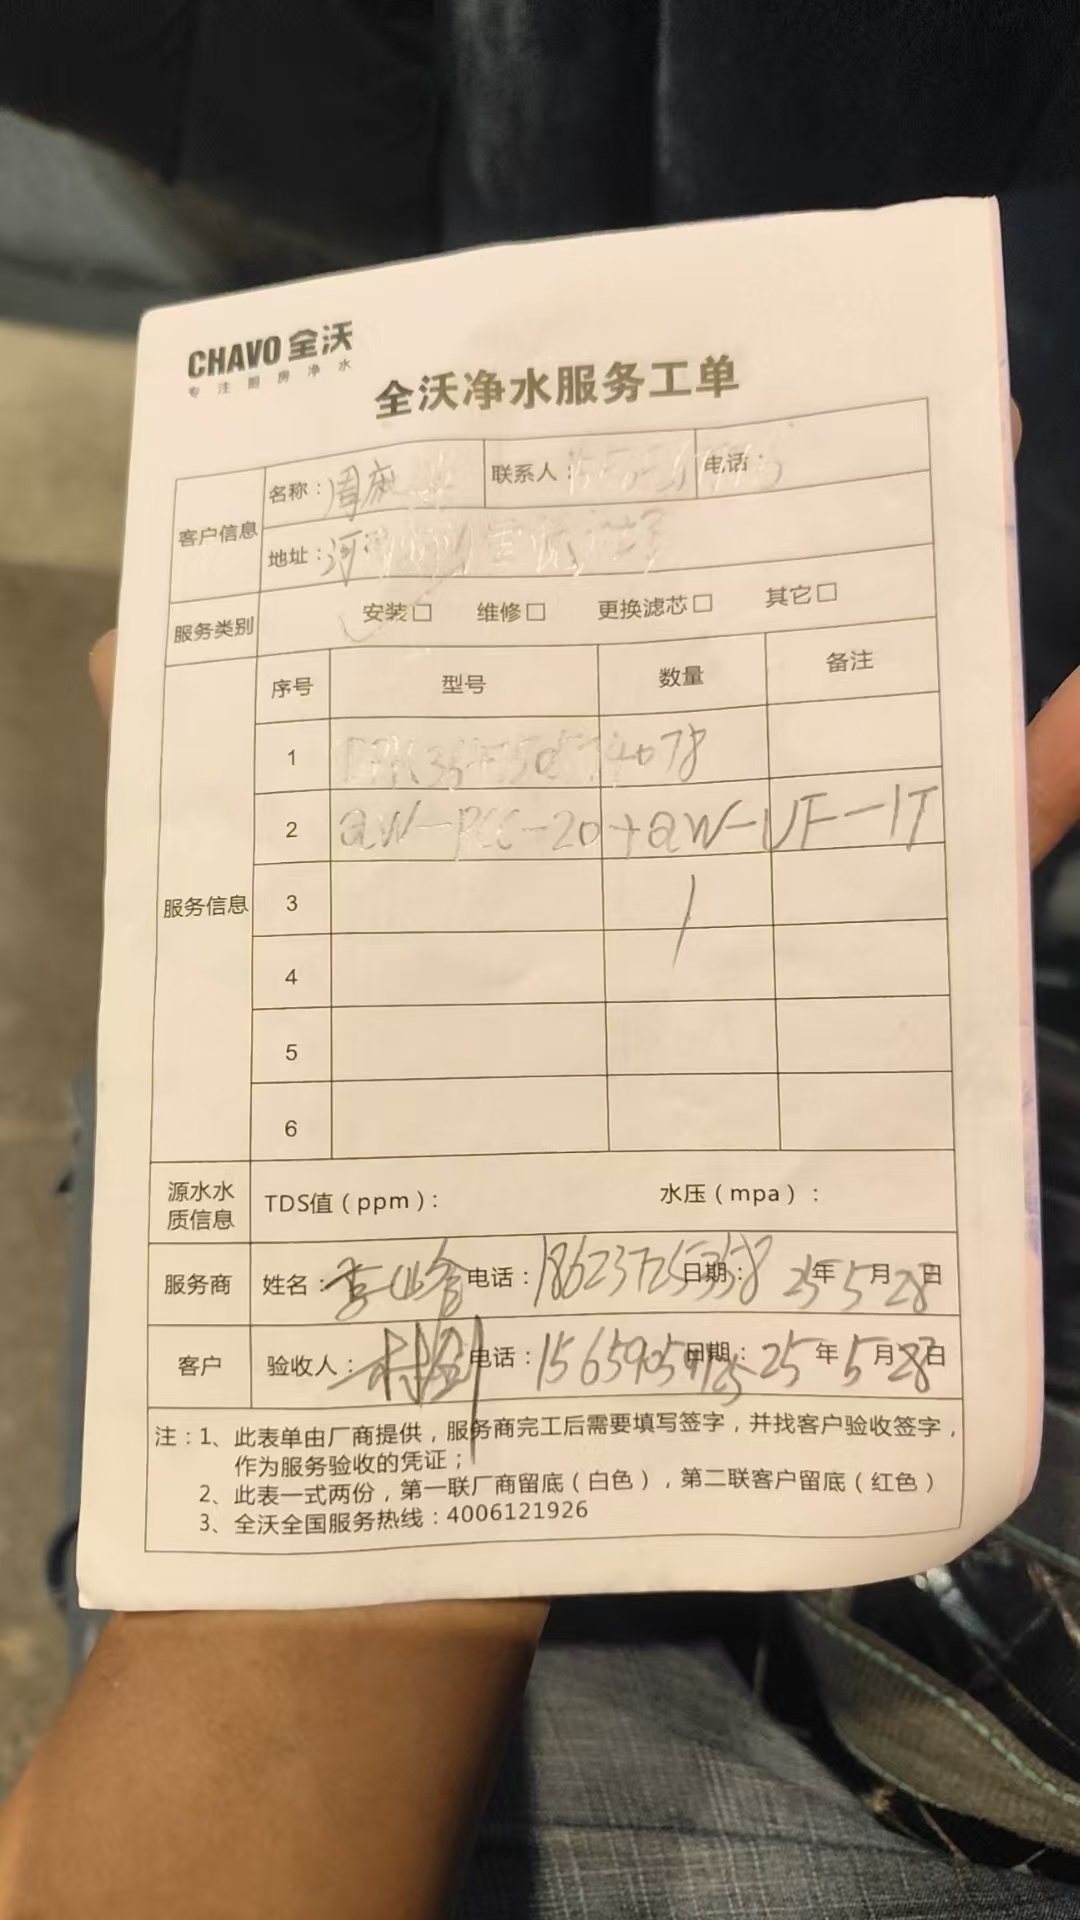 CHAVO 全沃
专注厨房净水
全沃净水服务工单
客户信息
名称：周
联系人：
电话：
地址：河
服务类别
安装□ 维修□ 更换滤芯□ 其它□
服务信息
序号 型号 数量 备注
1 4078
2 QW-PCC-20+QW-UF-1T
3 1
4
5
6
源水水质信息
TDS值（ppm）： 水压（mpa）：
服务商 姓名：李 电话：18623725358 日期：25年5月28日
客户 验收人： 电话：日期：25年5月28日
注：1、此表单由厂商提供，服务商完工后需要填写签字，并找客户验收签字，
作为服务验收的凭证；
2、此表一式两份，第一联厂商留底（白色），第二联客户留底（红色）
3、全沃全国服务热线：4006121926